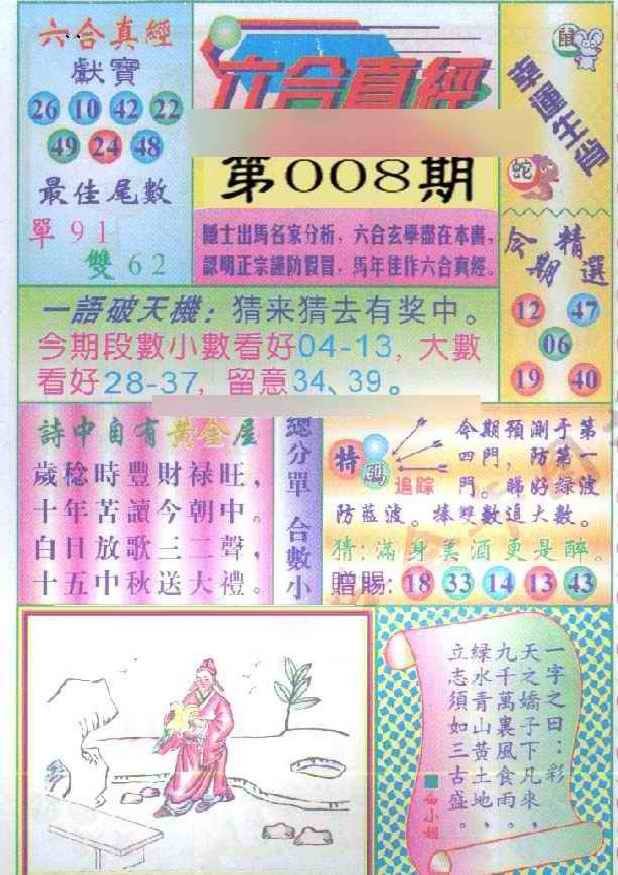 六合真經
獻寶
26 10 42 22
49 24 48
最佳尾數
單91
雙62
六合真經
第008期
隱士出馬名家分析，六合玄學盡在本書，
認明正宗謹防假冒，馬年佳作六合真經。
鼠
幸運生肖
蛇
今期精選
12 47
06
19 40
一語破天機：猜来猜去有奖中。
今期段數小數看好04-13，大數
看好28-37，留意34、39。
詩中自有黃金屋
歲稔時豐財禄旺，
十年苦讀今朝中。
白日放歌三二聲，
十五中秋送大禮。
總分單 合數小
特碼
追踪
今期預測于第
四門，防第一
門。睇好綠波
防藍波。捧雙數追大數。
猜：滿身美酒更是醉。
贈賜：18 33 14 13 43
一字之曰：彩
天之嬌子下凡來，
九千萬裏風食雨，
绿水青山黃土地，
立志須如三古盛。